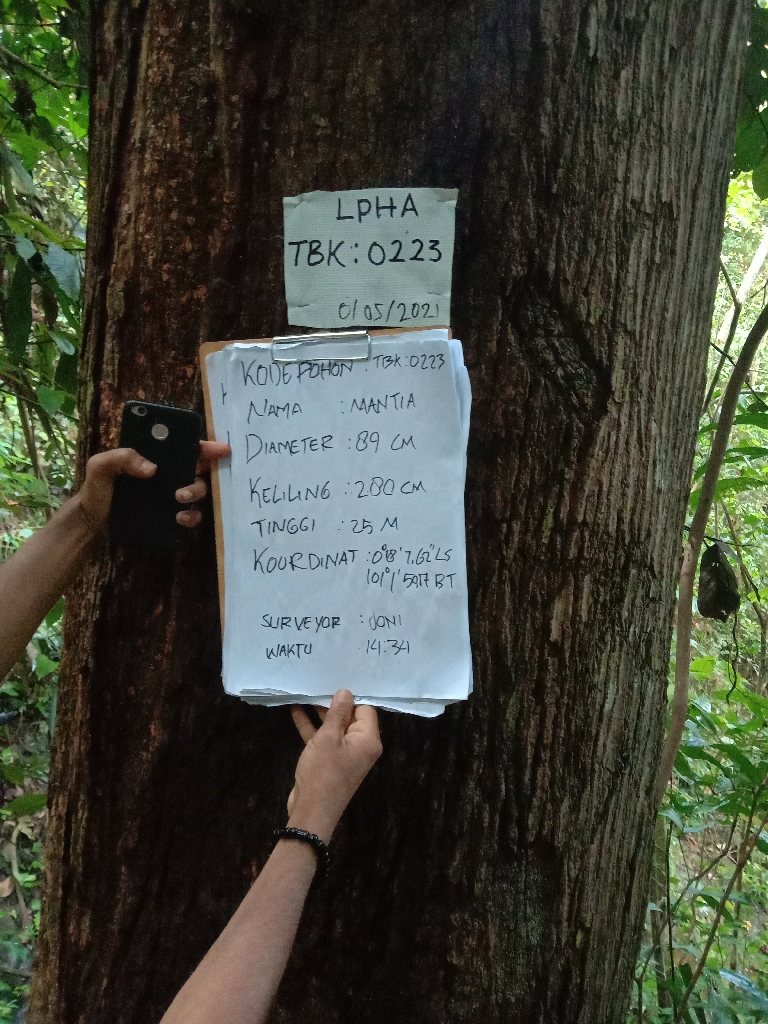 LPHA
TBK:0223
01/05/2021
KODE POHON : TBK:0223
NAMA : MANTIA
DIAMETER : 89 CM
KELILING : 280 CM
TINGGI : 25 M
KOORDINAT :
101°1' BT
SURVEYOR : JONI
WAKTU : 14:34